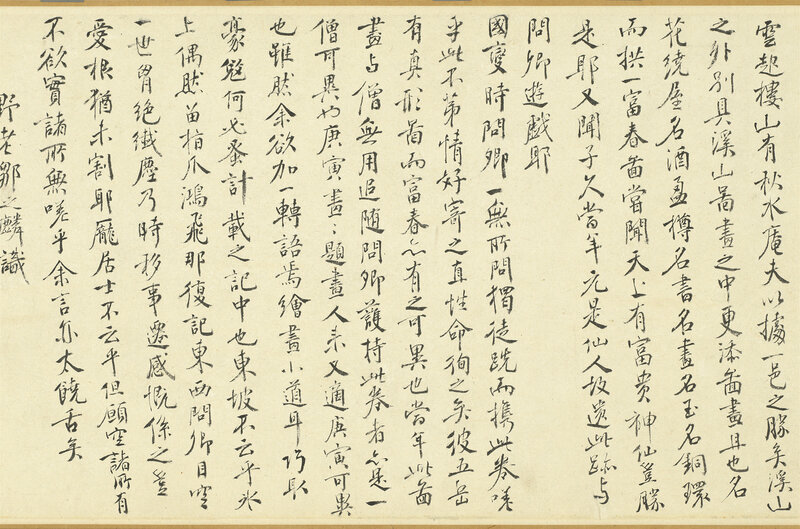 雲起樓山有秋水庵夫以據一邑之勝矣溪山
之外別具溪山啚畫之中更添啚畫且也名
花繞屋名酒盈樽名書名畫名玉名銅環
而拱一富春啚嘗聞天上有富貴神仙豈勝
是耶又聞子久當年元是仙人故遺此跡与
問卿遊戲耶
國變時問卿一無所問獨徒跣而攜此卷嗟
乎此不第情好寄之直性命徇之矣彼五岳
有真形啚而富春亦有之可異也當年此啚
畫与僧無用追随問卿護持此卷者亦是一
僧可異也庚寅畫〻題畫人來又適庚寅可異
也雖然余欲加一轉語焉繪畫小道耳巧取
豪奪何必蚤計載之記中也東坡不云乎氷
上偶然留指爪鴻飛那復記東西問卿目空
一世胷絶纖塵乃時移事遷感慨係之豈
愛根猶未割耶龐居士不云乎但願空諸所有
不欲實諸所無嗟乎余言亦太饒舌矣
野老鄒之麟識